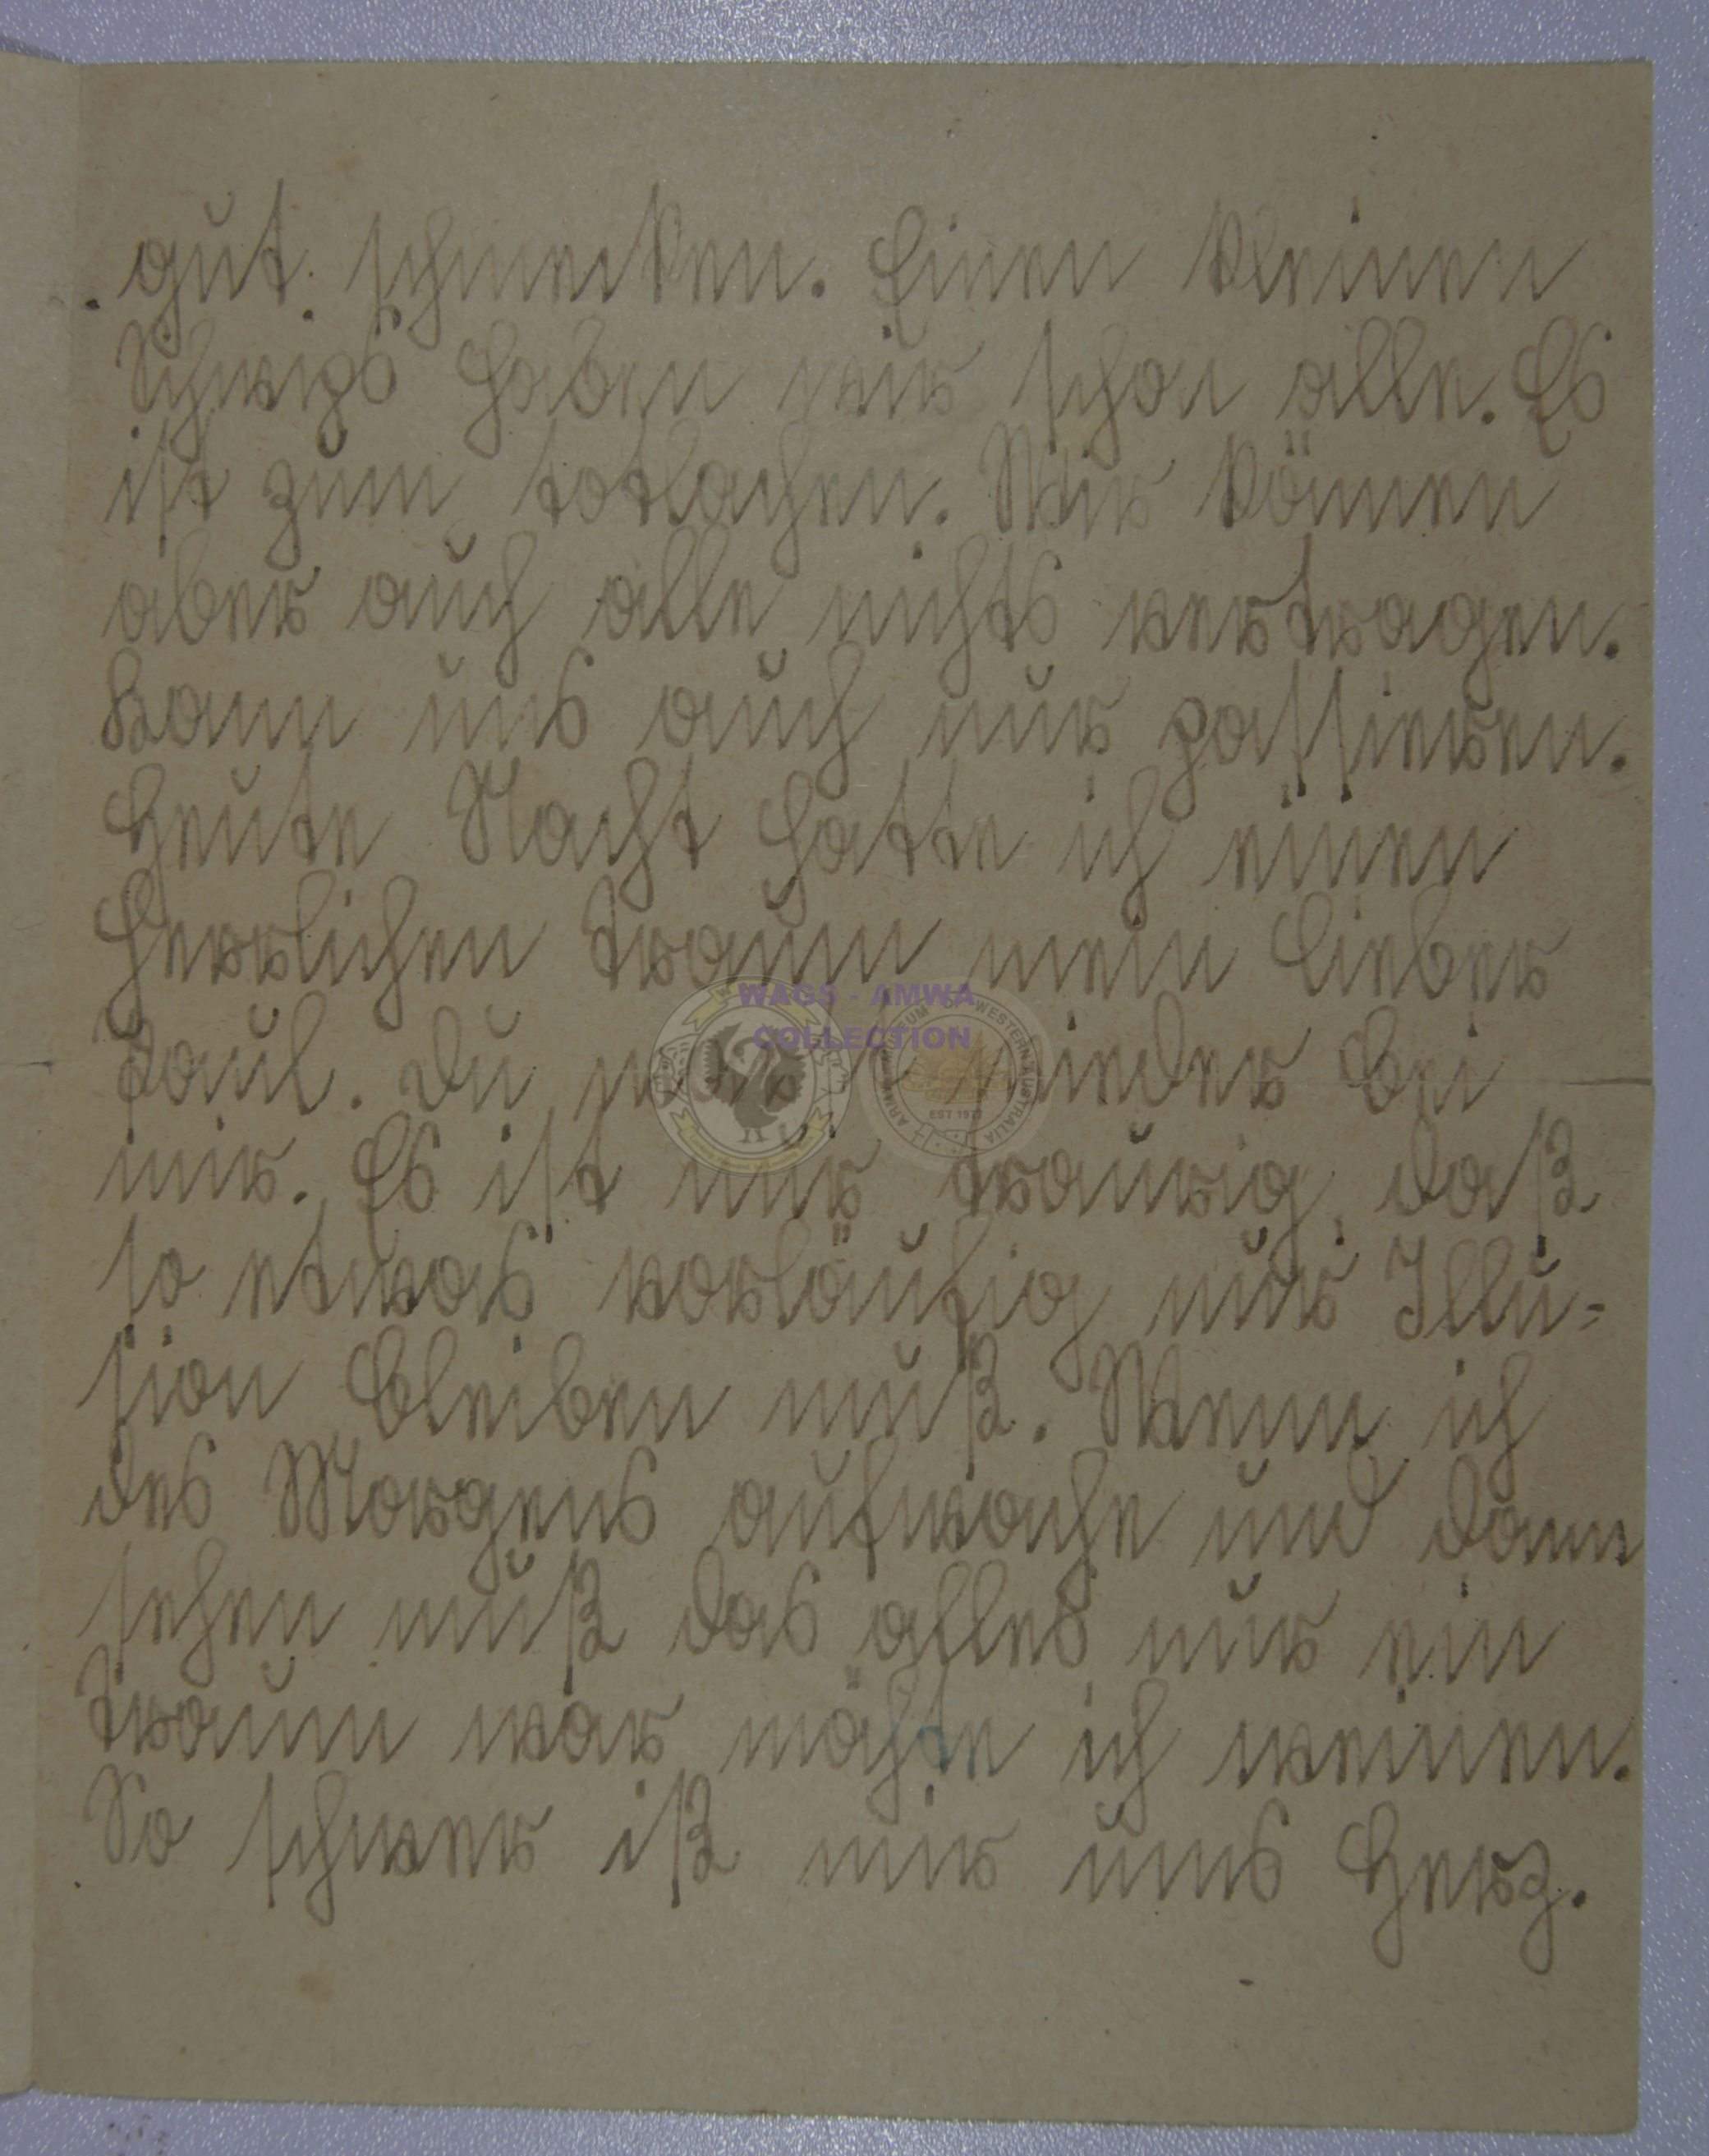 gut schmecken. Einen kleinen
Schwips haben wir schon alle. Es
ist zum totlachen. Wir können
aber auch alle nichts vertragen.
Kann uns auch nur passieren.
Heute Nacht hatte ich einen
herrlichen Traum mein lieber
Paul. Du warst wieder bei
mir. Es ist nur traurig, daß
so etwas vorläufig nur Illu-
sion bleiben muß. Wenn ich
des Morgens aufwache und dann
sehen muß das alles nur ein
Traum war möchte ich weinen.
So schwer iß mir ums Herz.
WAGS - AMWA
COLLECTION
WESTERN AUSTRALIA
EST 1977